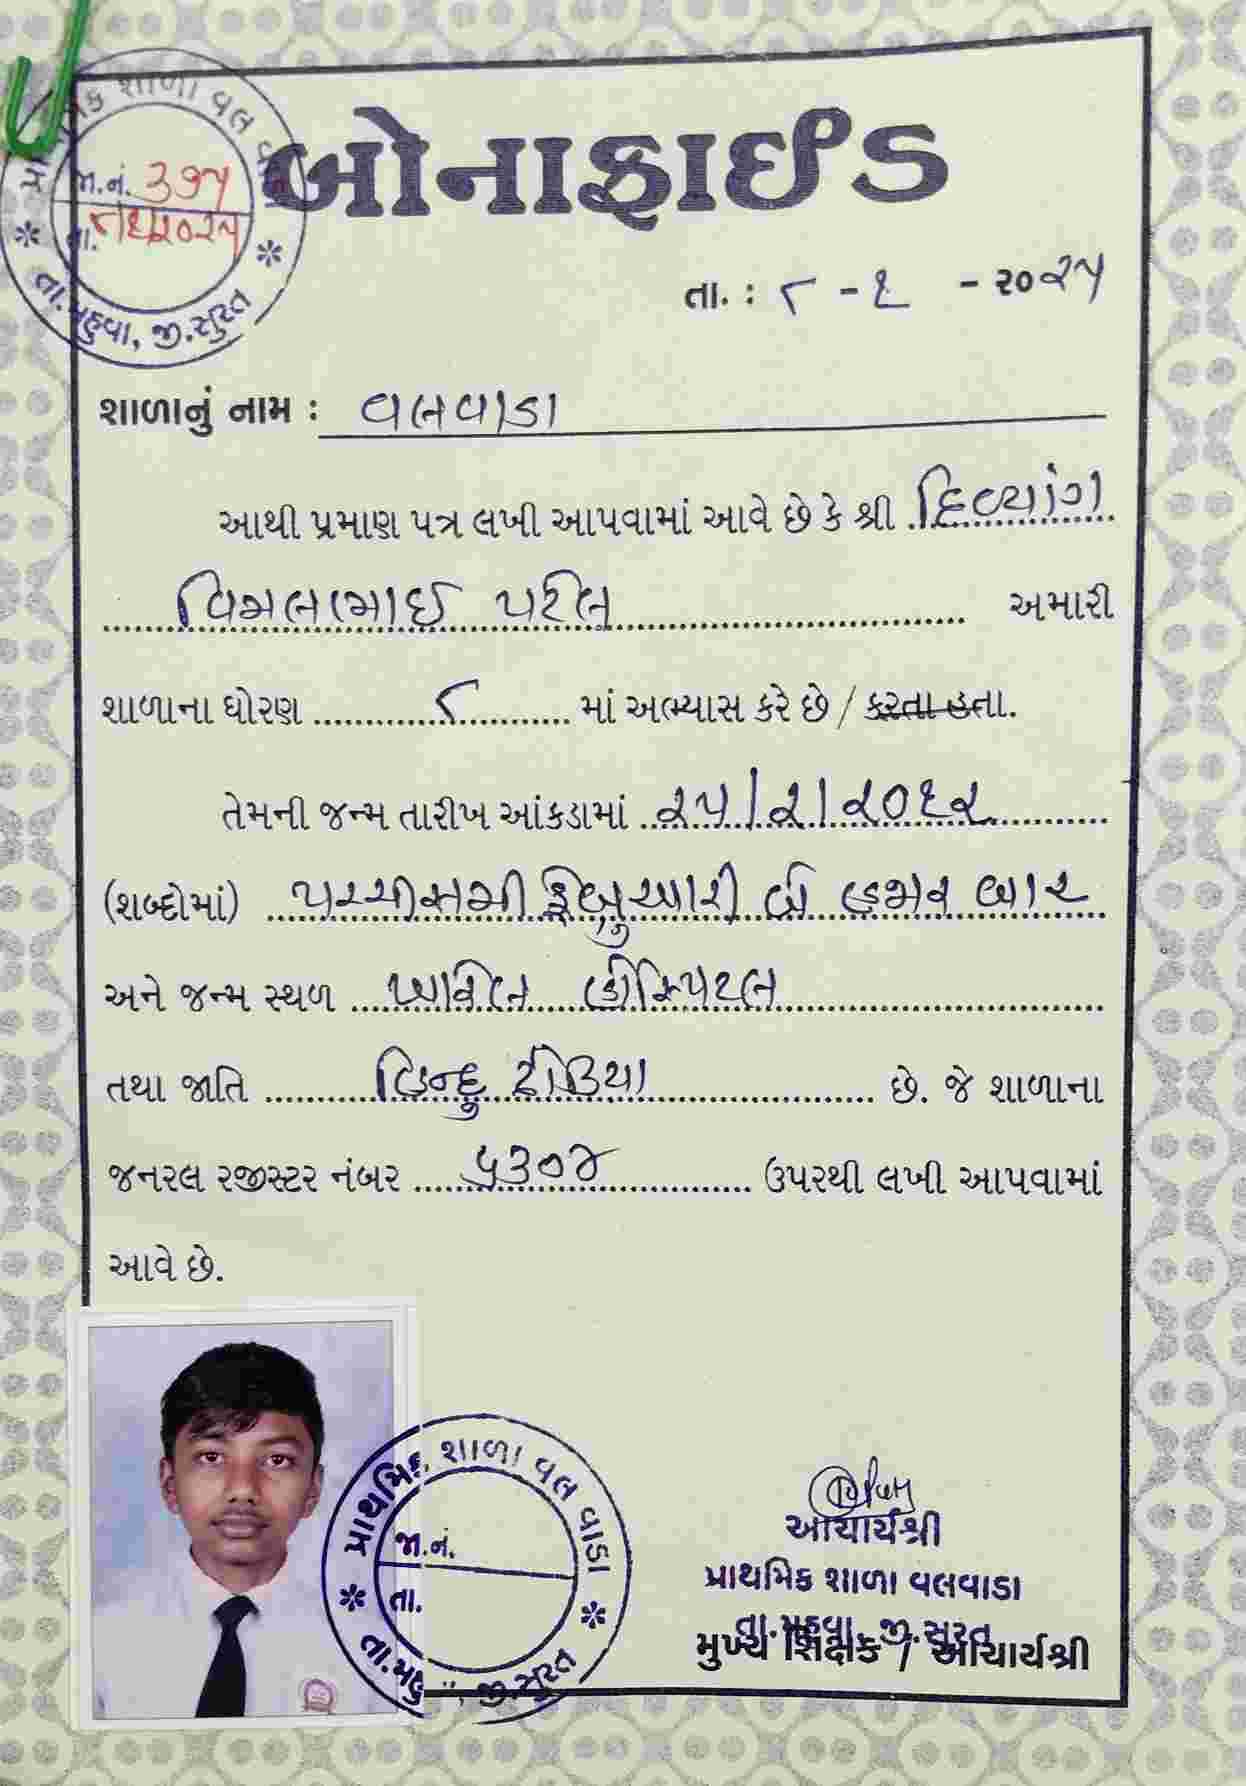 પ્રાથમિક શાળા વલવાડા
જા.નં. ૩૭૫
તા. ૮/૬/૨૦૨૫
તા.મહુવા, જી.સુરત
બોનાફાઈડ
તા. : ૮ - ૬ - ૨૦૨૫
શાળાનું નામ : વલવાડા
આથી પ્રમાણ પત્ર લખી આપવામાં આવે છે કે શ્રી દિવ્યાંગ
વિમલભાઈ પટેલ અમારી
શાળાના ધોરણ ૮ માં અભ્યાસ કરે છે / કરતા હતા.
તેમની જન્મ તારીખ આંકડામાં ૨૫/૨/૨૦૧૨
(શબ્દોમાં) પચ્ચીસમી ફેબ્રુઆરી બે હજાર બાર
અને જન્મ સ્થળ હોસ્પિટલ
તથા જાતિ હિન્દુ ઢોડિયા છે. જે શાળાના
જનરલ રજીસ્ટર નંબર ૫૩૦૪ ઉપરથી લખી આપવામાં
આવે છે.
પ્રાથમિક શાળા વલવાડા
જા.નં.
તા.
તા.મહુવા, જી.સુરત
આચાર્યશ્રી
પ્રાથમિક શાળા વલવાડા
તા.મહુવા, જી.સુરત
મુખ્ય શિક્ષક / આચાર્યશ્રી